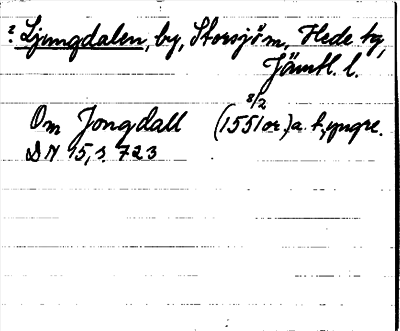 ? Ljungdalen, by, Storsjö sn, Hede tg,
Jämtl. l.
Om Jongdall (1551 8/2 or.) a. h. yngre.
DN 15, s. 723